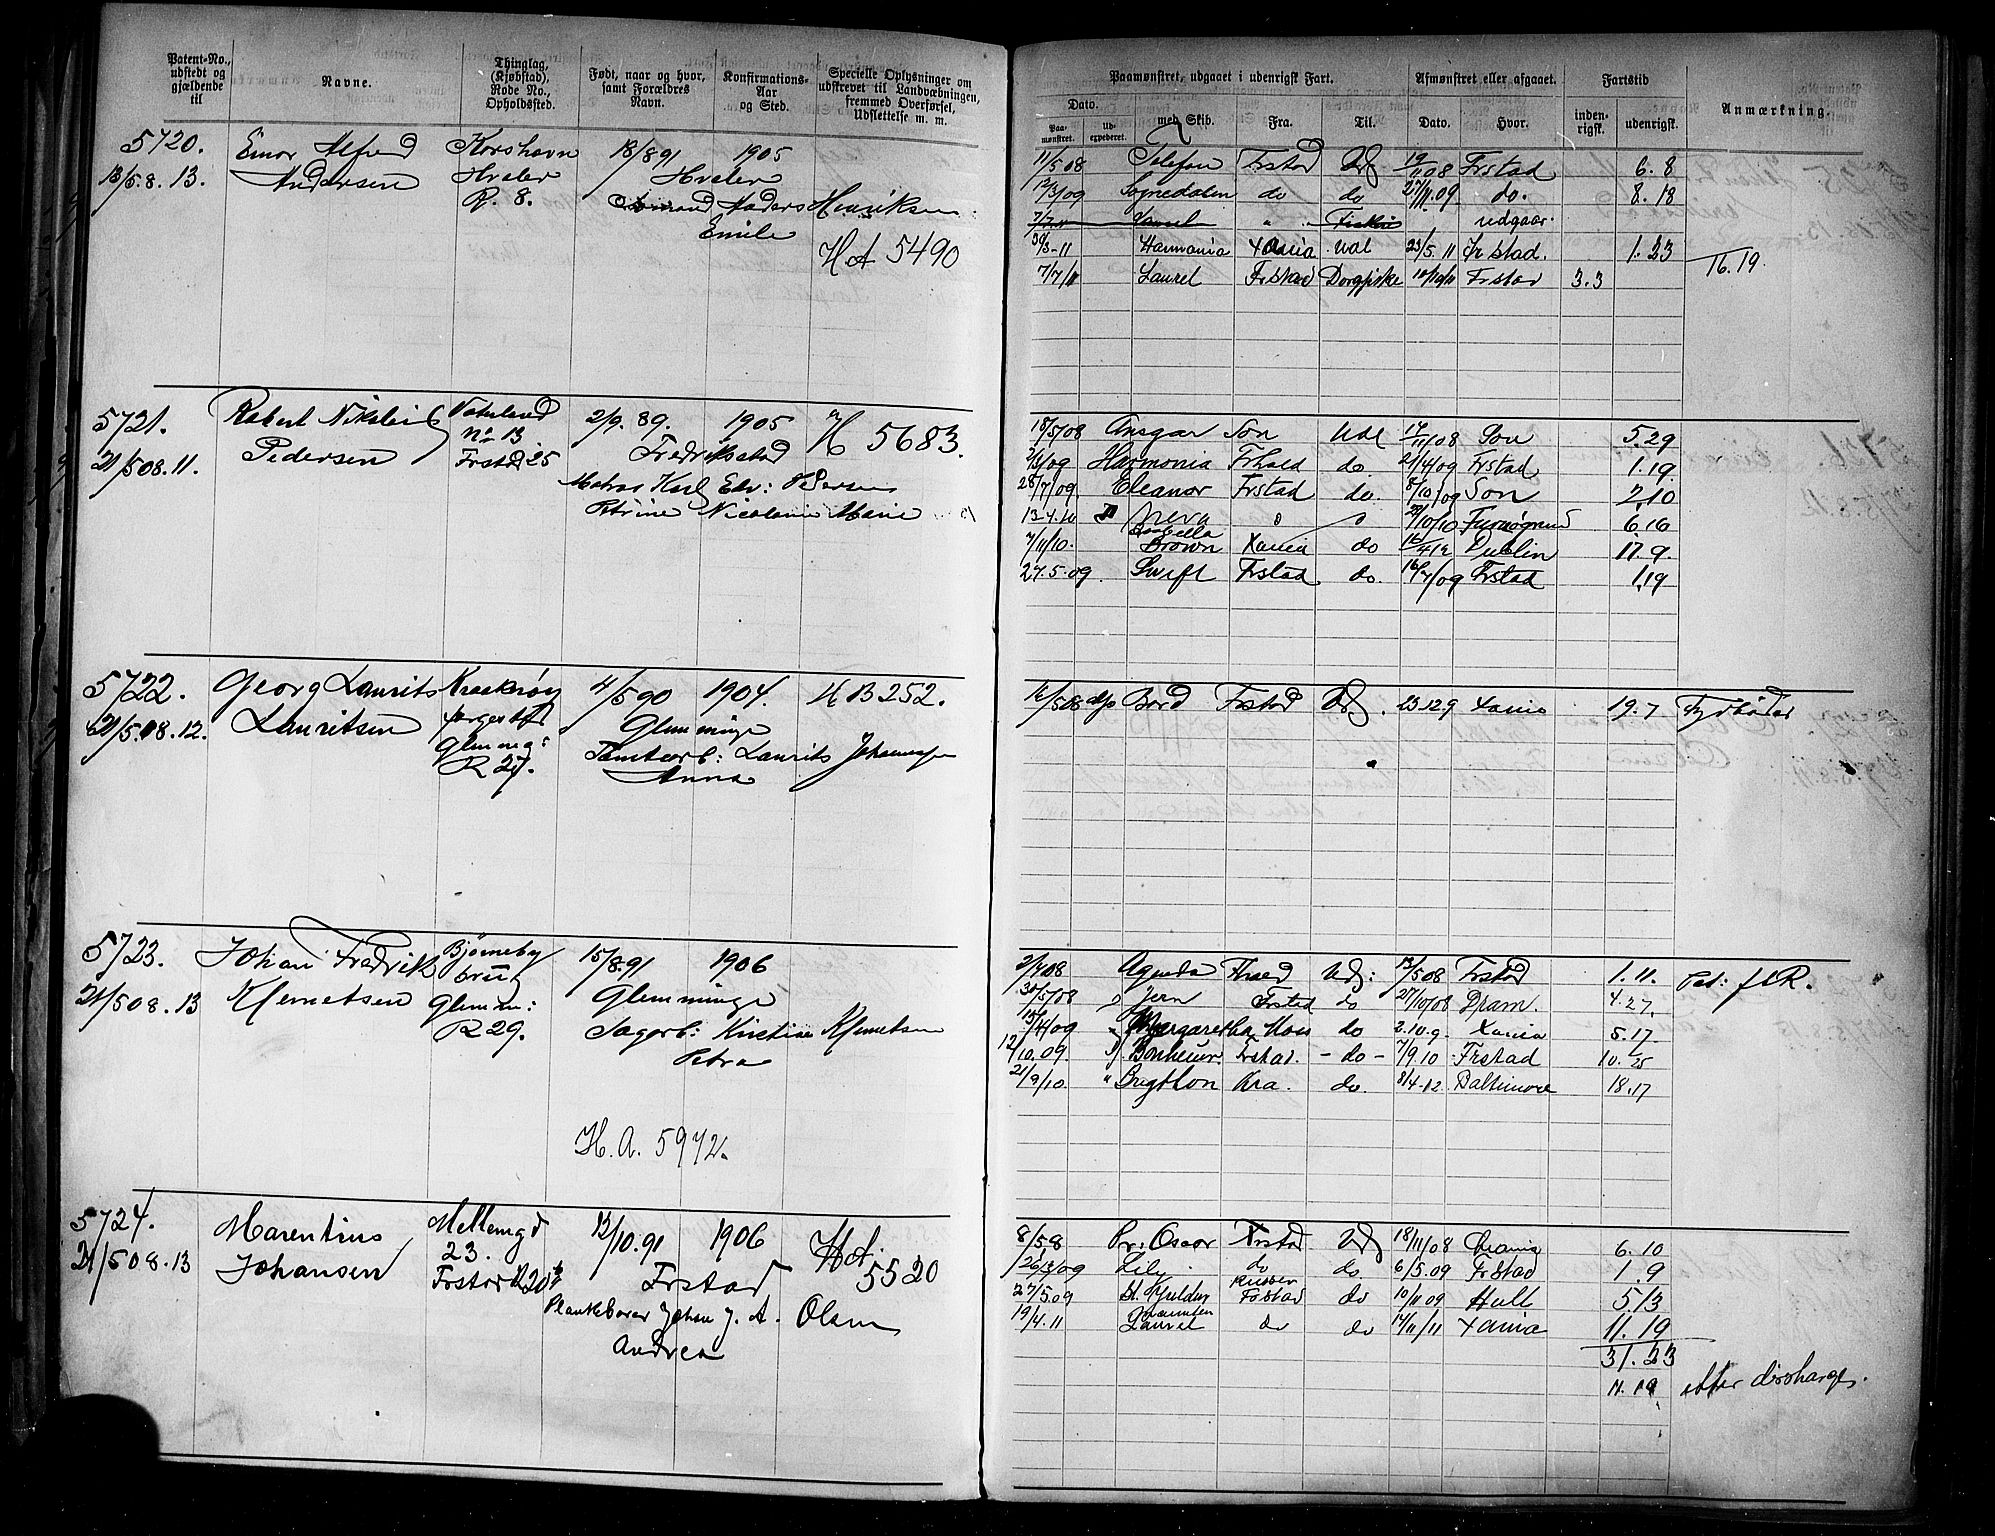 Patent-No., udstedt og gjældende til
Navne.
Thinglag, (Kjøbstad), Rode No., Opholdsted.
Født, naar og hvor, samt Forældres Navn.
Konfirmations- Aar og Sted.
Specielle Oplysninger om udstrevet til Landværbningen, fremmed Overførsel, Udslettelse m. m.
Paamønstret, udgaaet i udenrigsk Fart.
Afmønstret eller afgaaet.
Fartstid
Anmærkning.
Dato.
Paa- mønstret.
Ud- expederet.
med Skib.
Fra.
Til.
Dato.
Hvor.
inden- rigsk.
udenrigsk.
5720. Einar Alfred Korshavn 18/8 91 1905
13/5.8.13. Andersen Hvaler Hvaler
R. 8. Anders Henriksen
Emile
HA 5490
11/5 08 Telefon Frstad Udl 19/11 08 Frstad 6.8
12/3/09 Sognedalen do do 27/11.09 do. 8.18
7/7.11 Laurel " Fiskeri udgaar.
30/3-11 Harmonia Xania udl 23/5.11 Frstad. 1.23
16.19.
7/7/11 Laurel Frstad Dorgfiske 10/10/11 Frstad 3.3
5721. Robert Nikolai Vaterland 2/9. 89. 1905 H 5683.
21/5 08.11. Pedersen No 13 Fredriksstad
Frstad 25
Matros Karl Edv: Pedersen
Petrine Nicoline Marie
18/5/08 Ansgar Son Udl 17/11/08 Son 5.29
2/3/09 Harmonia Frhald do 21/4/09 Frstad 1.19.
28/7/09. Eleanor Frstad do. 8/10/09 Son 2.10
13-4.10 Neva 29/10/10 6.16
7/11/10. Isabella Brown Xania do 16/4 12 Dublin 17.9.
27.5.09. Swift Frstad do. 16/7/09 Frstad 1.19
5722. Georg Laurits Kraakerøy 4/5 90 1904. H B 252.
21/5.08.12. Lauritsen Glemminge
Glemme:
R 27.
Tomtearb: Laurits Johannessen
Anna
16/5 08 Bard Frstad Udl. 23.12.9 Xania 19.7 Fyrbøder
5723. Johan Fredrik Bjørneby 15/8.91 1906
21/5 08.13 Klemetsen brug Glemminge
Glemm:
R 29.
Sagarb: Kristian Klemetsen
Petra
H. A. 5972.
2/4 08 Agneta Frhald Udl: 13/5 08 Frstad 1.11.
30/5/08 Jern Frstad do 27/10/08 Dram. 4.27.
15/4/09 " Margaretha Moss do 2.10.9. Xania 5.17.
12/10.09. Bonheur Frstad. - do - 7/9.10 Frstad 10.25
21/9/10. " Brighton Kra. do. 8/4.12. Baltimore 18.17
5724. Marentius Mellemgd 13/10.91 1906 HA.
21/5 08.13 Johansen 23. Frstad 5520
Frstad R20
Plankebærer Johan J. A. Olsen
Andrea
8/5 8 Pr: Oscar Frstad Udl 18/11/08 Xrania 6.10
26/3/09 Lily do do. 6/5.09 Frstad 1.9
27/5.09 Frstad do 10/11 09 Hull 5.13
19/4.11 Laurel do do 17/11/11 Xania 11.19
31.23
11.19 efter discharge.